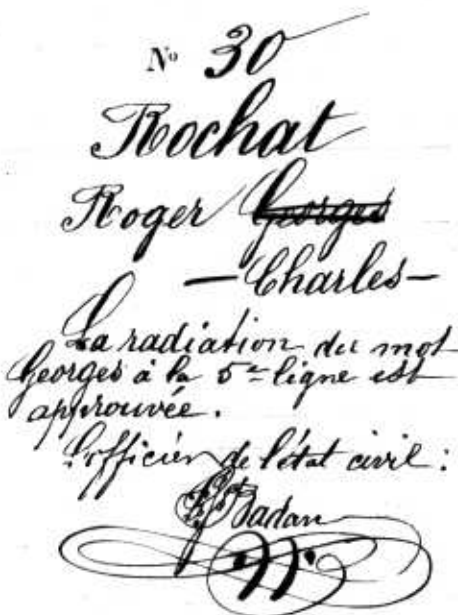 Nº 30
Rochat
Roger Georges
— Charles —
La radiation du mot
Georges à la 5e ligne est
approuvée.
L'officier de l'état civil :
Badan